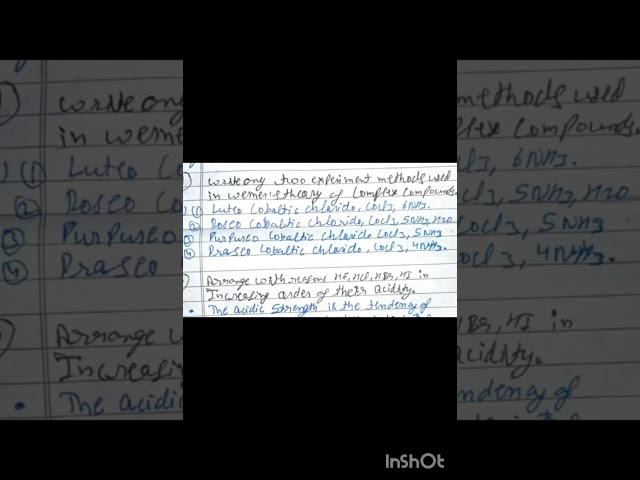 write any two experiment methods used
in werner's theory of complex compounds.
(1) Luteo Cobaltic chloride, CoCl3, 6NH3.
(2) Roseo Cobaltic chloride, CoCl3, 5NH3, H2O
(3) PurPureo Cobaltic chloride CoCl3, 5NH3
(4) Praseo Cobaltic chloride, CoCl3, 4NH3.
Arrange with reasons HF, HCl, HBr, HI in
Increasing order of their acidity.
• The acidic strength is the tendency of
InShOt